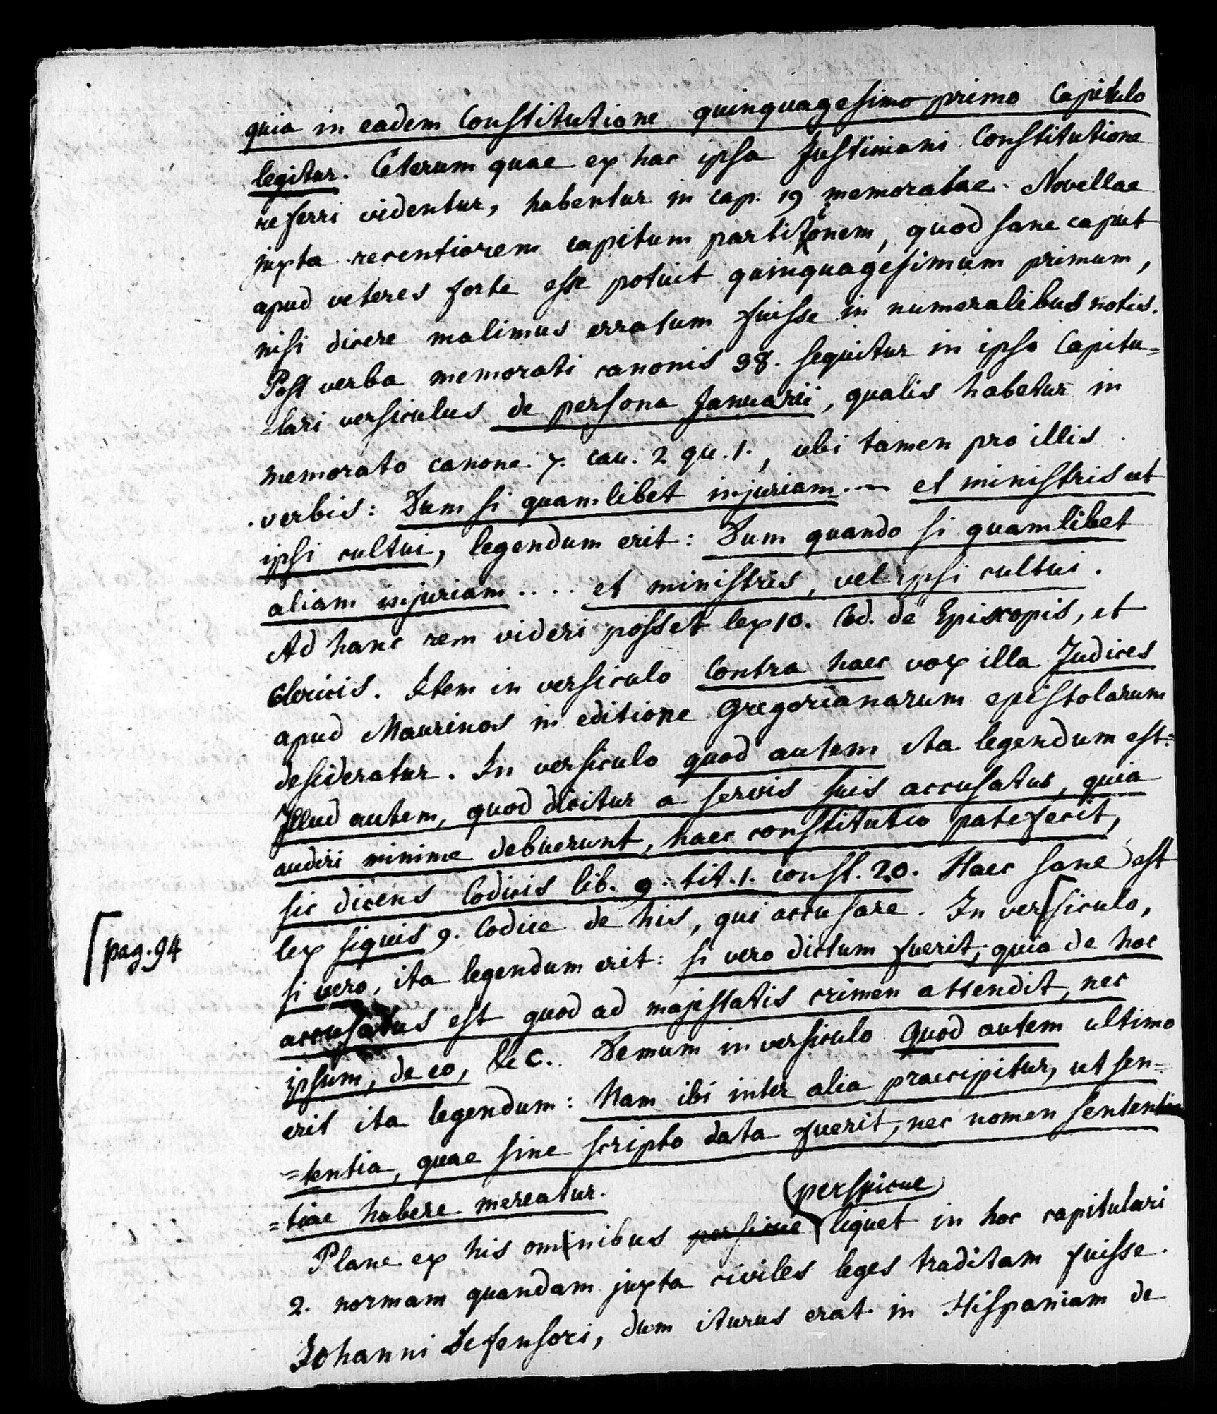 quia in eadem Constitutione quinquagesimo primo Capitulo
legitur. Ceterum quae ex hac ipsa Justiniani Constitutione
referri videntur, habentur in cap. 19 memoratae Novellae
juxta recentiorem capitum partitionem, quod sane caput
apud veteres forte esse potuit quinquagesimum primum,
nisi dicere malimus erratum fuisse in numeralibus notis.
Post verba memorati canonis 38. sequitur in ipso Capitu=
=lari versiculus de persona Januarii, qualis habetur in
memorato canone 7. cau. 2 qu. 1., ubi tamen pro illis
verbis: Dum si quamlibet injuriam .... et ministris ut
ipsi cultui, legendum erit: Dum quando si quamlibet
aliam injuriam .... et ministris, vel ipsi cultui.
Ad hanc rem videri posset lex 10. Cod. de Episcopis, et
Clericis. Item in versiculo Contra haec vox illa Judices
apud Maurinos in editione Gregorianarum epistolarum
desideratur. In versiculo quod autem ita legendum est:
Illud autem, quod dicitur a servis suis accusatus, quia
audiri minime debuerunt, haec constitutio patefecit,
sic dicens Codicis lib. 9. tit. 1. const. 20. Haec sane est
lex siquis 9. Codice de his, qui accusare. In versiculo,
pag. 94
si vero, ita legendum erit: si vero dictum fuerit, quia de hoc
accusatus est quod ad majestatis crimen attendit, nec
ipsum, de eo, &c.. Demum in versiculo Quod autem ultimo
erit ita legendum: Nam ibi inter alia praecipitur, ut sen=
=tentia, quae sine scripto data fuerit, nec nomen senten
=tiae habere mereatur.
perspicue
Plane ex his omnibus liquet in hoc capitulari
2. normam quandam juxta civiles leges traditam fuisse
Johanni Defensori, dum iturus erat in Hispaniam de